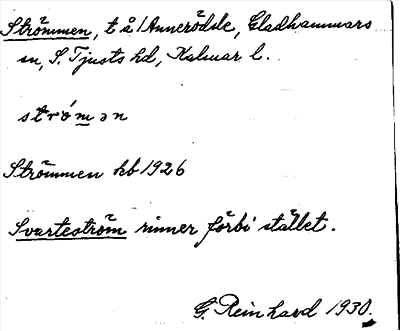 Strömmen, t å Anneröds le, Gladhammars
sn, S. Tjusts hd, Kalmar l.
strómən
Strömmen kb 1926
Svarteström rinner förbi stället.
G. Reinhard 1930.